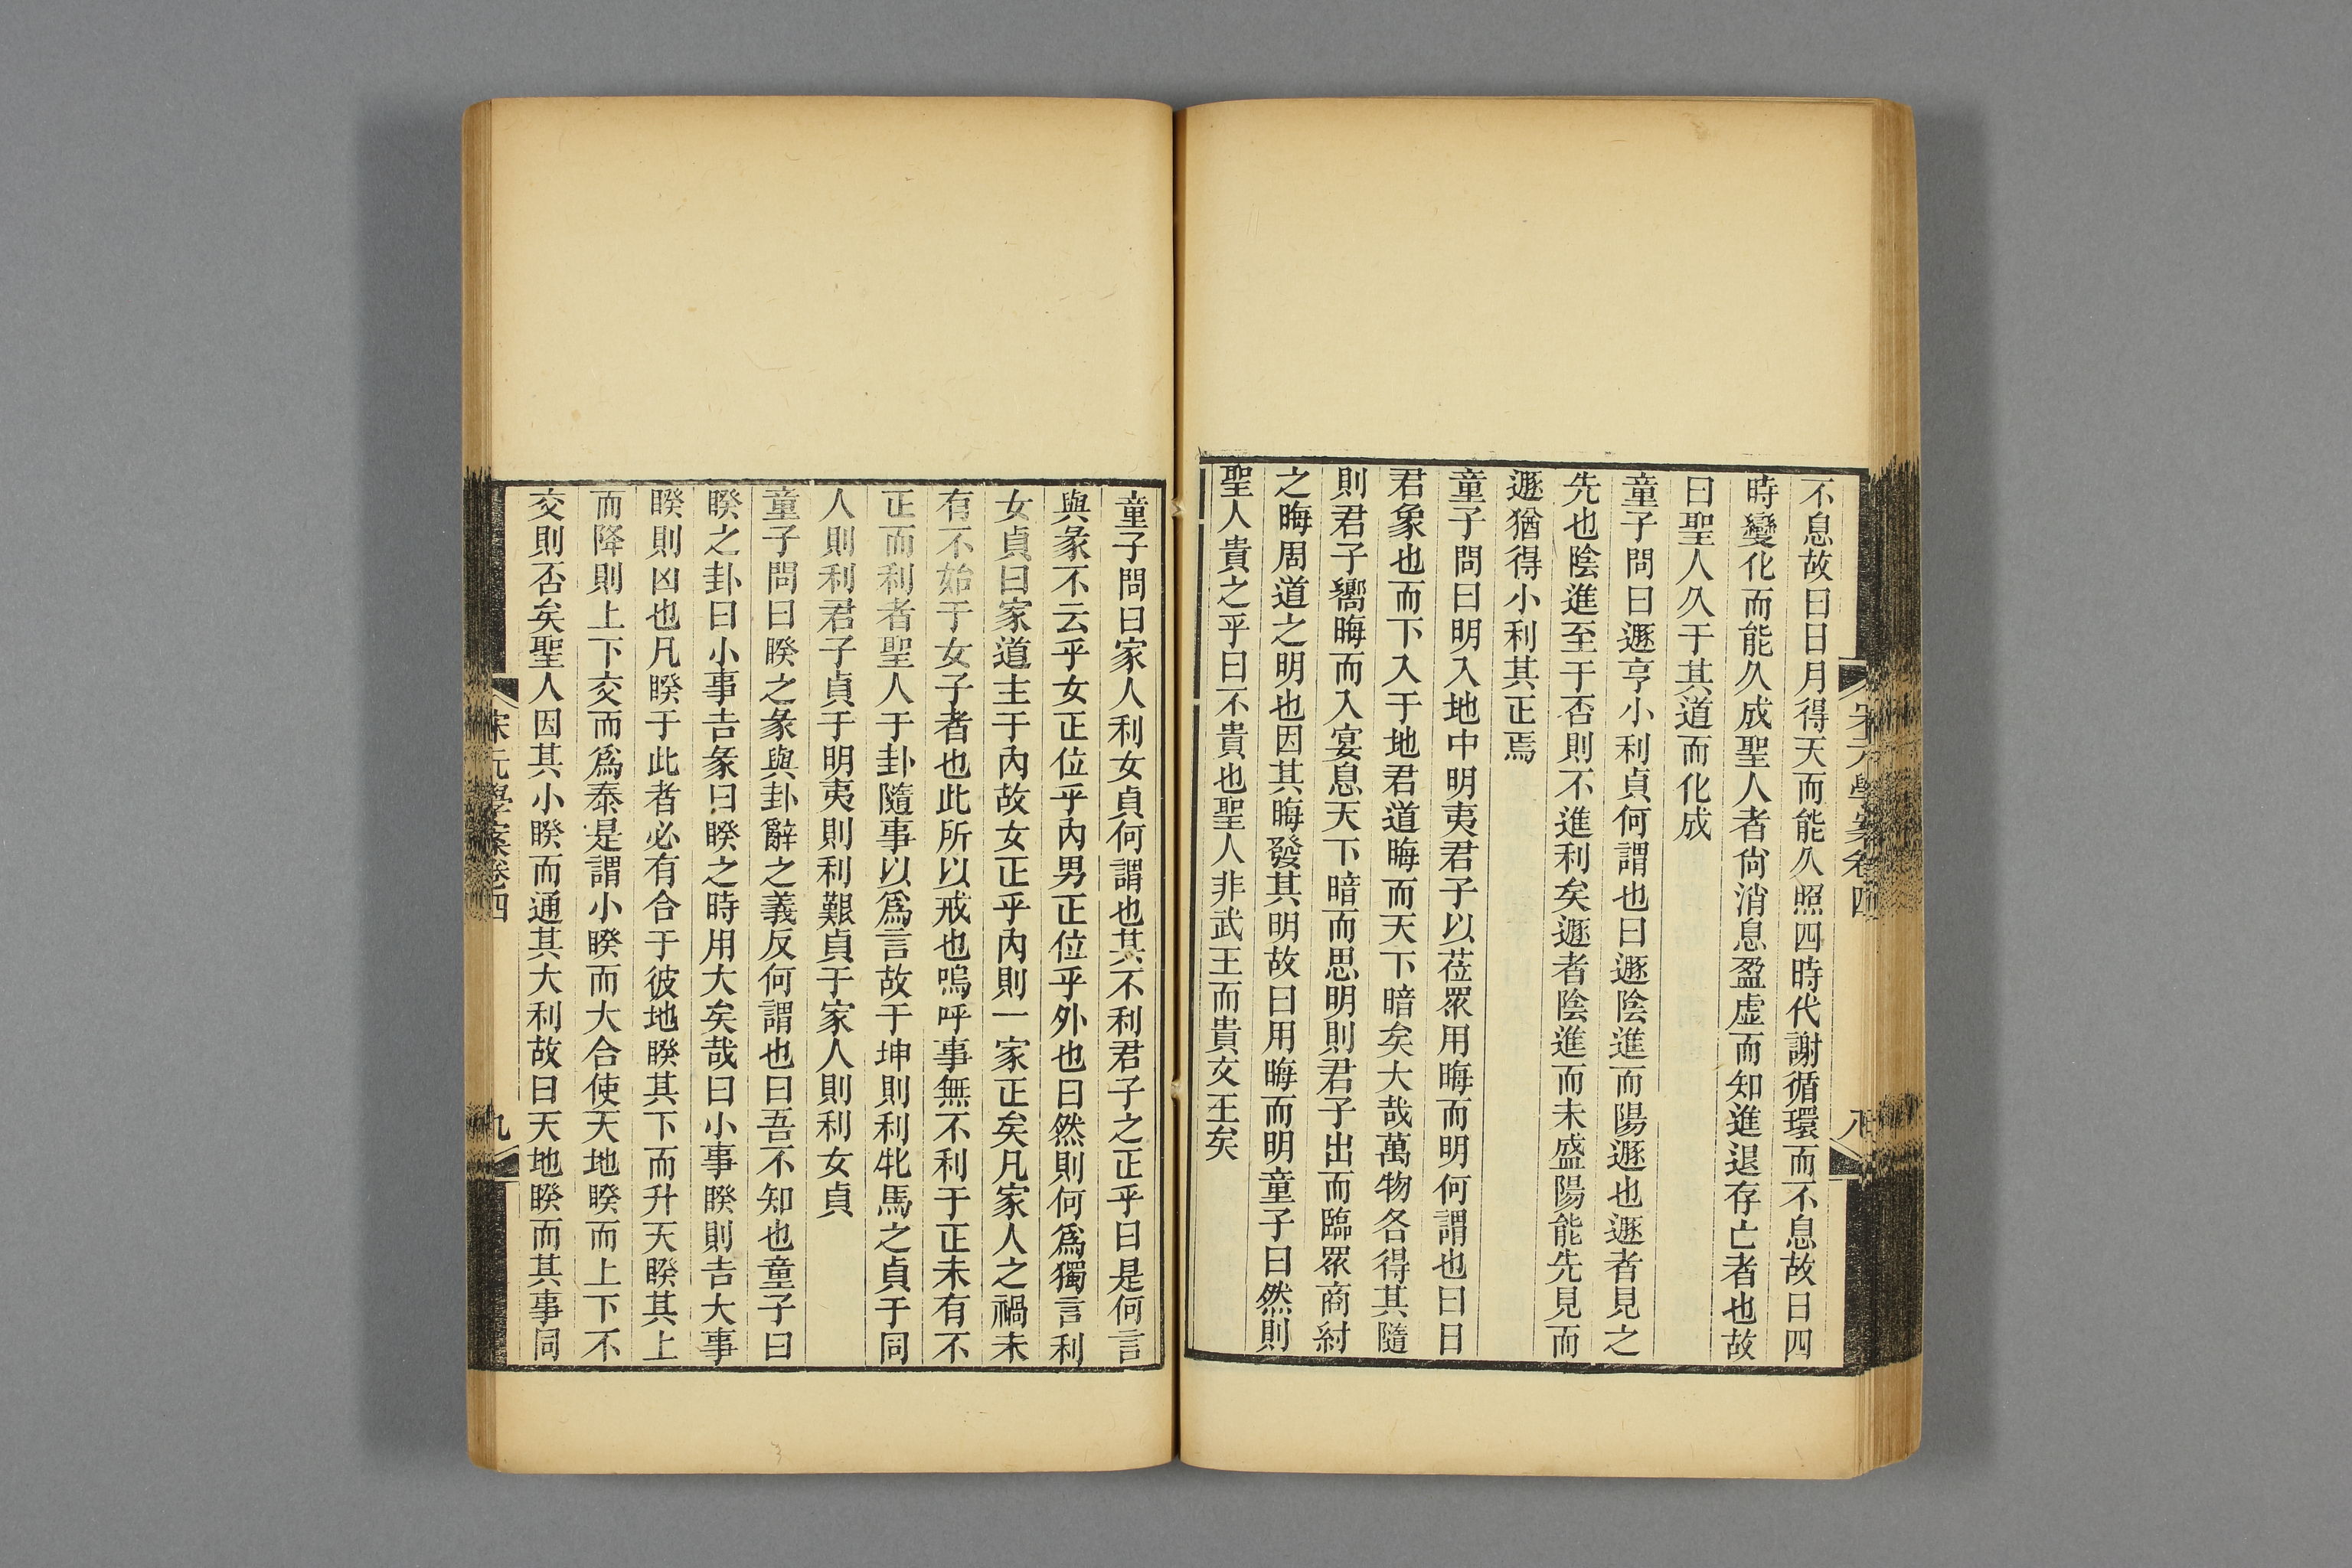 宋元學案卷四
八
不息故曰日月得天而能久照四時代謝循環而不息故曰四
時變化而能久成聖人者尙消息盈虛而知進退存亡者也故
曰聖人久于其道而化成
童子問曰遯亨小利貞何謂也曰遯陰進而陽遯也遯者見之
先也陰進至于否則不進利矣遯者陰進而未盛陽能先見而
遯猶得小利其正焉
童子問曰明入地中明夷君子以莅眾用晦而明何謂也曰日
君象也而下入于地君道晦而天下暗矣大哉萬物各得其隨
則君子嚮晦而入宴息天下暗而思明則君子出而臨眾商紂
之晦周道之明也因其晦發其明故曰用晦而明童子曰然則
聖人貴之乎曰不貴也聖人非武王而貴文王矣
童子問曰家人利女貞何謂也其不利君子之正乎曰是何言
與彖不云乎女正位乎內男正位乎外也曰然則何爲獨言利
女貞曰家道主于內故女正乎內則一家正矣凡家人之禍未
有不始于女子者也此所以戒也嗚呼事無不利于正未有不
正而利者聖人于卦隨事以爲言故于坤則利牝馬之貞于同
人則利君子貞于明夷則利艱貞于家人則利女貞
童子問曰睽之彖與卦辭之義反何謂也曰吾不知也童子曰
睽之卦曰小事吉彖曰睽之時用大矣哉曰小事睽則吉大事
睽則凶也凡睽于此者必有合于彼地睽其下而升天睽其上
而降則上下交而爲泰是謂小睽而大合使天地睽而上下不
交則否矣聖人因其小睽而通其大利故曰天地睽而其事同
宋元學案卷四
九